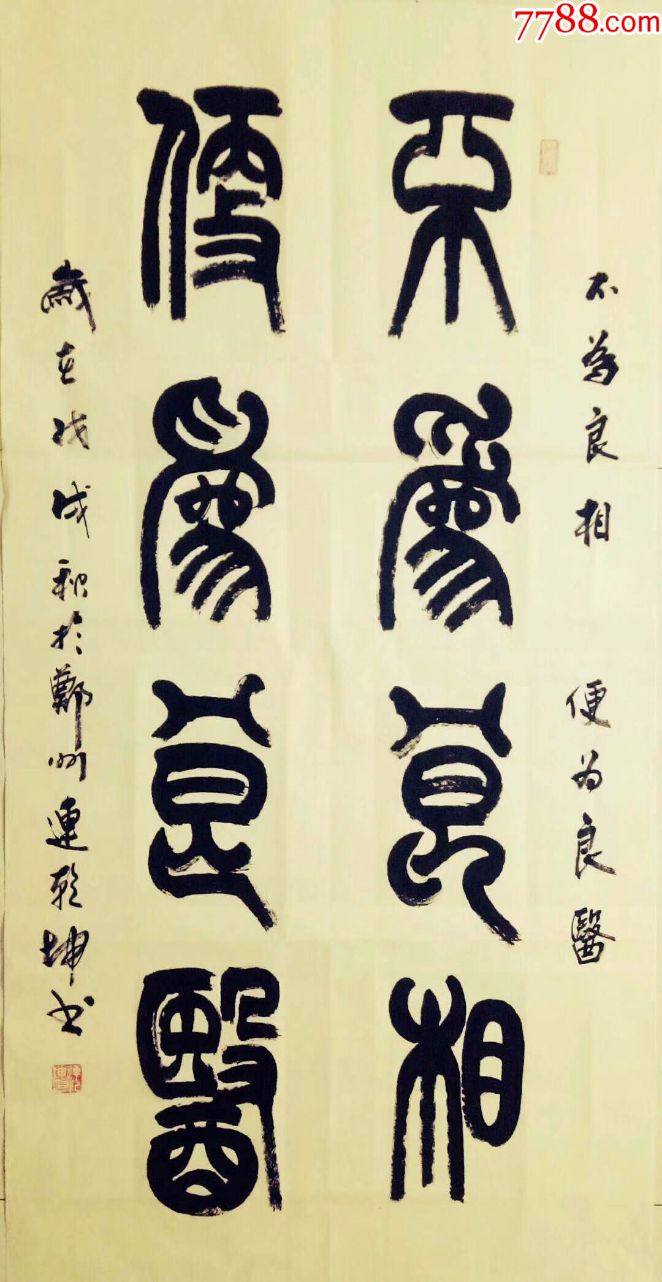 7788.com
不為良相
便為良醫
不為良相
便為良醫
歲在戊戌秋於鄭州連乾坤書